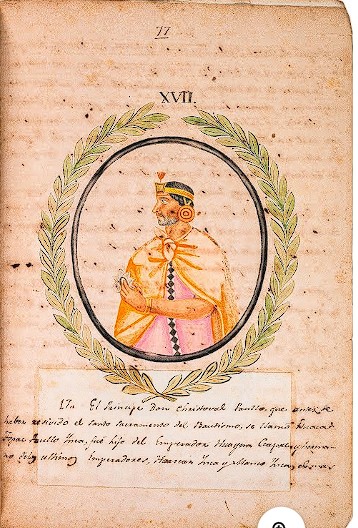 77
XVII.
17. El Principe Don Christoval Paullo, que antes de
haber recivido el Santo Sacramento del Bautismo, se llamó
Topac Paullo Inca, fué hijo del Emperador Huayna Capac, y herma-
no de los ultimos Emperadores, Huascar Inca y Manco Inca,